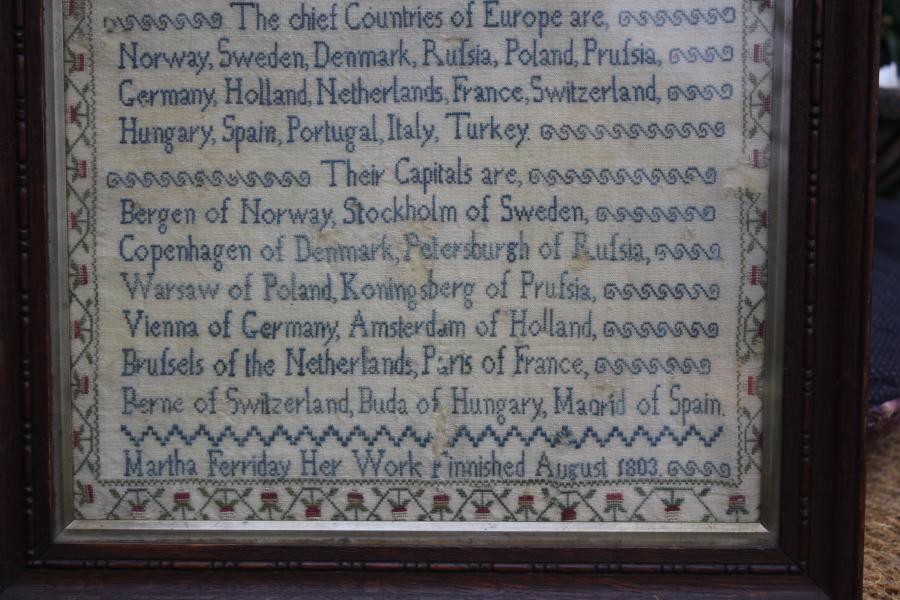 The chief Countries of Europe are,
Norway, Sweden, Denmark, Ruſsia, Poland, Pruſsia,
Germany, Holland, Netherlands, France, Switzerland,
Hungary, Spain, Portugal, Italy, Turkey.
Their Capitals are,
Bergen of Norway, Stockholm of Sweden,
Copenhagen of Denmark, Petersburgh of Ruſsia,
Warsaw of Poland, Koningsberg of Pruſsia,
Vienna of Germany, Amsterdam of Holland,
Bruſsels of the Netherlands, Paris of France,
Berne of Switzerland, Buda of Hungary, Madrid of Spain.
Martha Ferriday Her Work Finnished August 1803